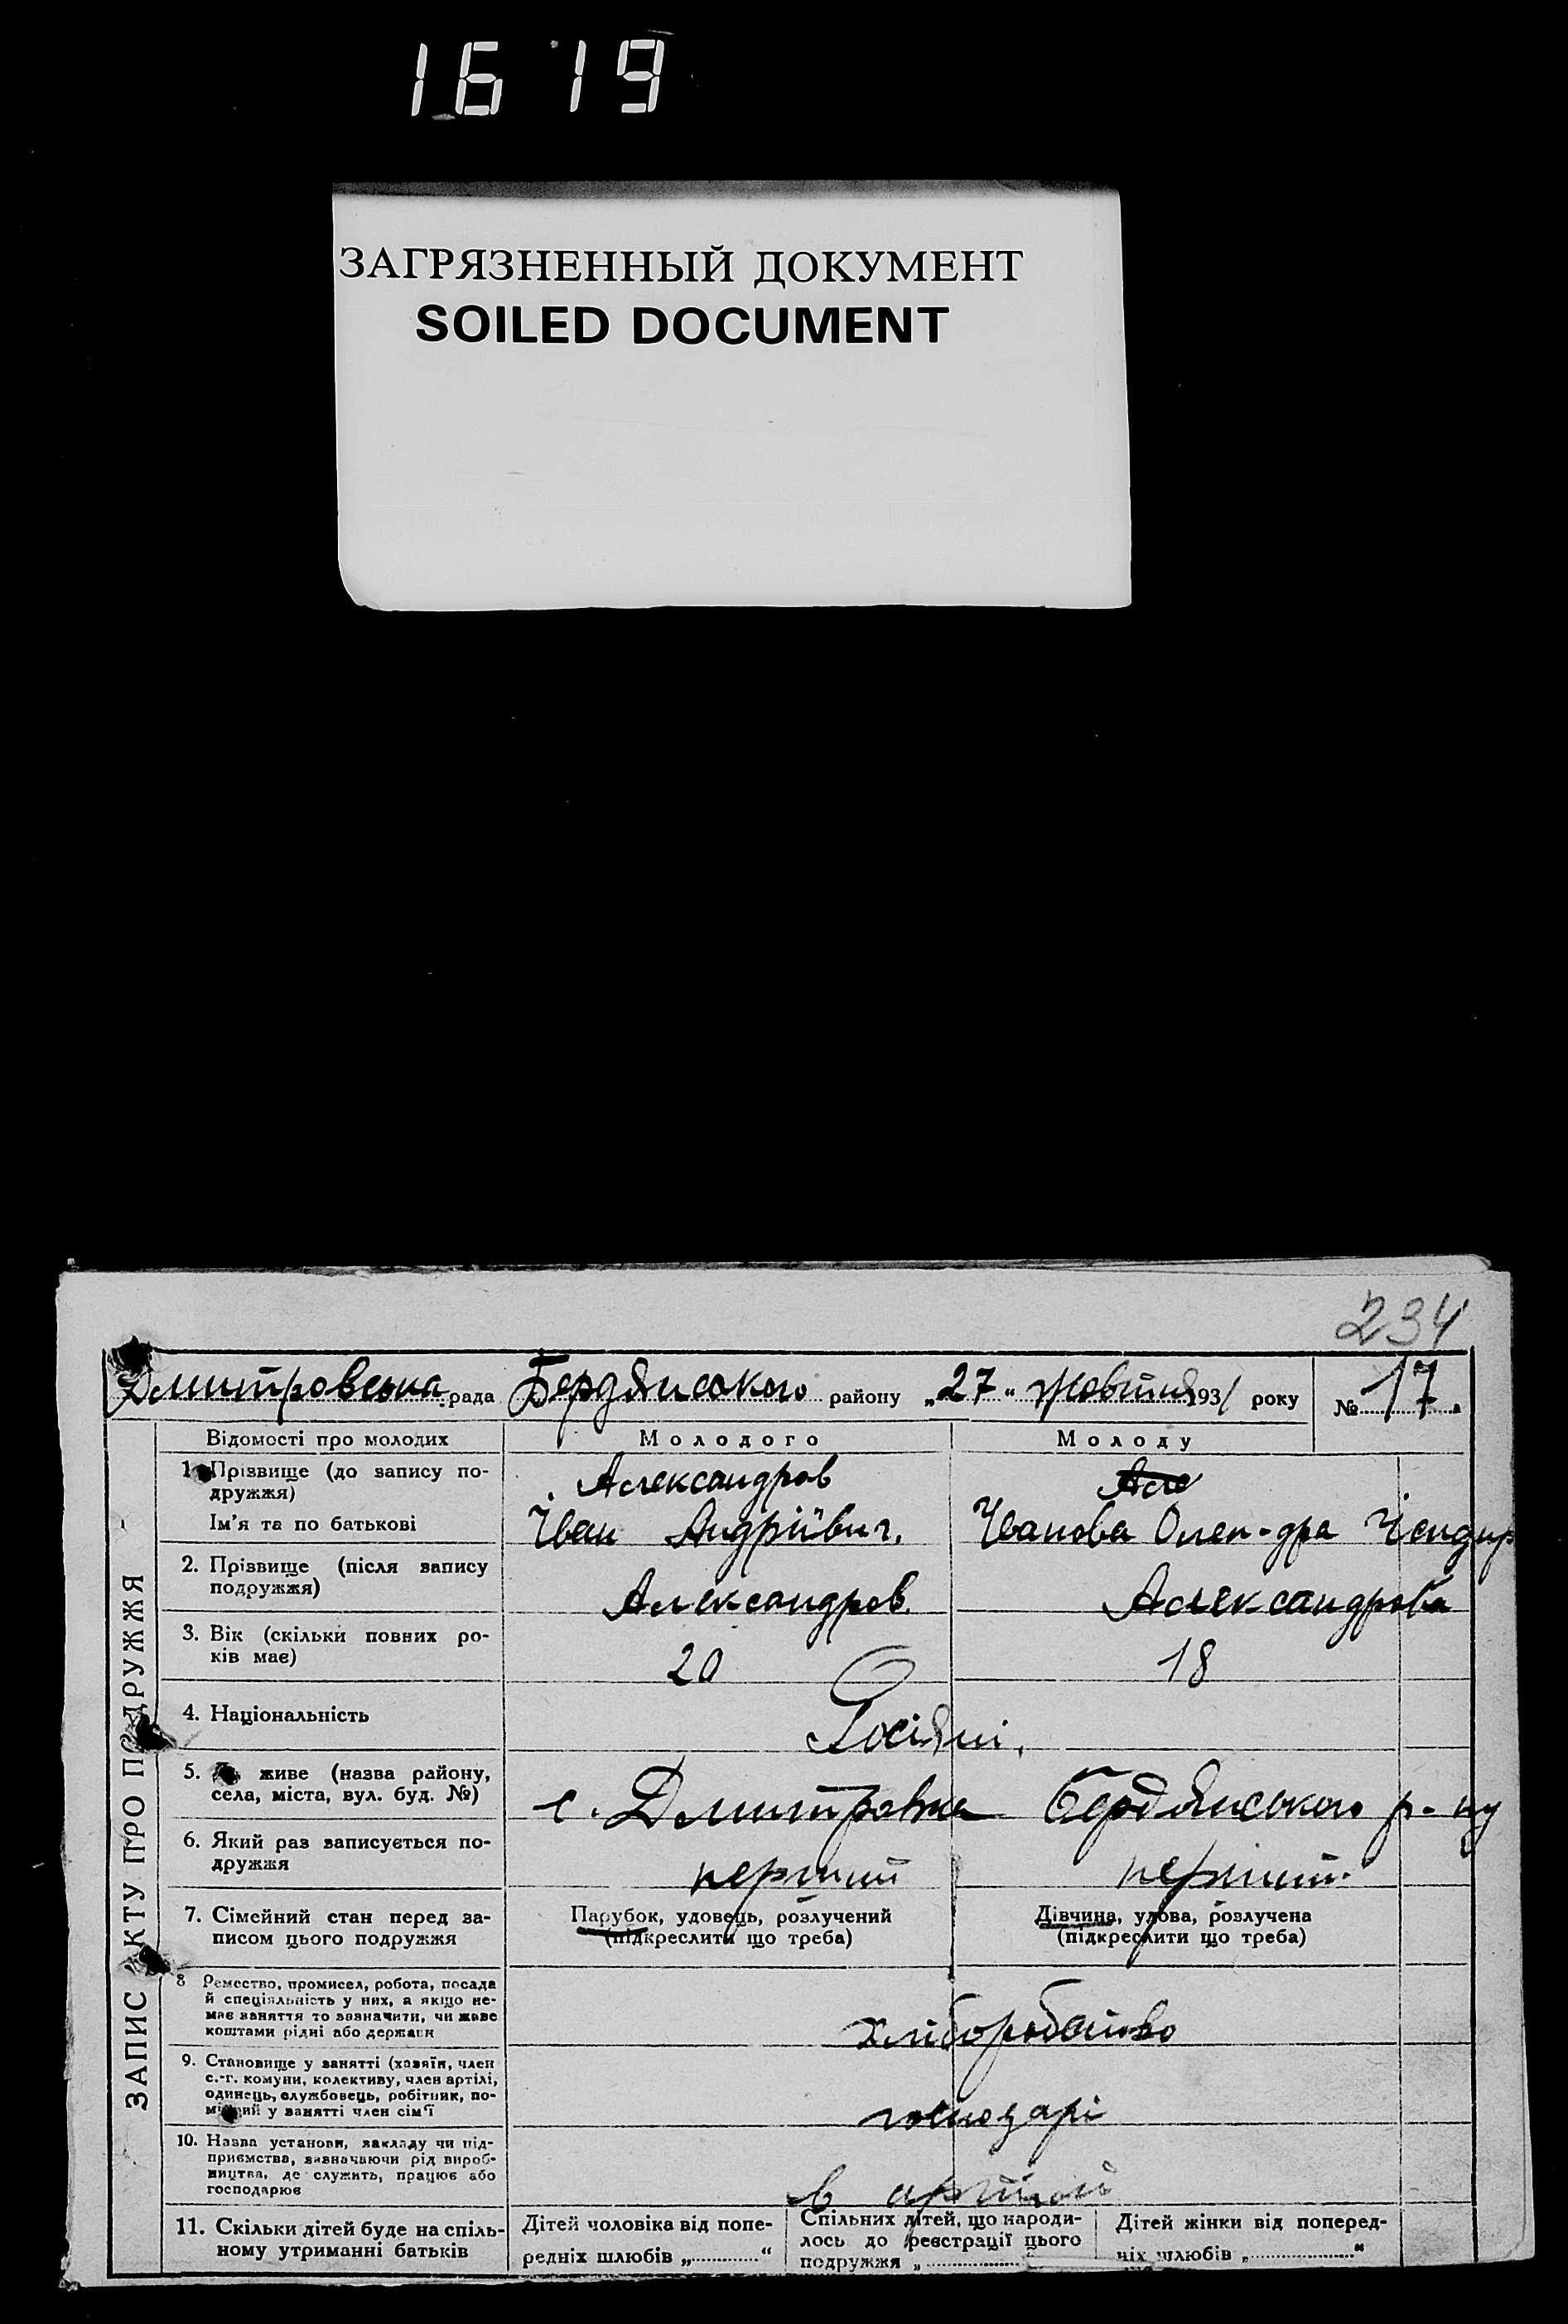 1619
ЗАГРЯЗНЕННЫЙ ДОКУМЕНТ
SOILED DOCUMENT
234
Дмитровська рада Бердянського району „27" жовтня 1931 року № 17.
ЗАПИС АКТУ ПРО ПОДРУЖЖЯ
Відомості про молодих
Молодого
Молоду
1. Прізвище (до запису по-
дружжя)
Ім'я та по батькові
Александров
Іван Андріївич.
Але
Іванова Олек-дра
2. Прізвище (після запису
подружжя)
Александров
Александрова
3. Вік (скільки повних ро-
ків має)
20
18
4. Національність
Росіяни.
5. Де живе (назва району,
села, міста, вул. буд. №)
с. Дмитровка Бердянського р-ну
6. Який раз записується по-
дружжя
перший
перший.
7. Сімейний стан перед за-
писом цього подружжя
Парубок, удовець, розлучений
(підкреслити що треба)
Дівчина, удова, розлучена
(підкреслити що треба)
8 Ремество, промисел, робота, посада
й спеціяльність у них, а якщо не-
має заняття то зазначити, чи живе
коштами рідні або держави
хліборобство
9. Становище у занятті (хазяїн, член
с.-г. комуни, колективу, член артілі,
одинець, службовець, робітник, по-
мічний у занятті член сім'ї
господарі
10. Назва установи, закладу чи під-
приємства, зазначаючи рід вироб-
ництва, де служить, працює або
господарює
в артілі
11. Скільки дітей буде на спіль-
ному утриманні батьків
Дітей чоловіка від попе-
редніх шлюбів „ “
Спільних дітей, що народи-
лось до реєстрації цього
подружжя „
Дітей жінки від поперед-
ніх шлюбів „ “